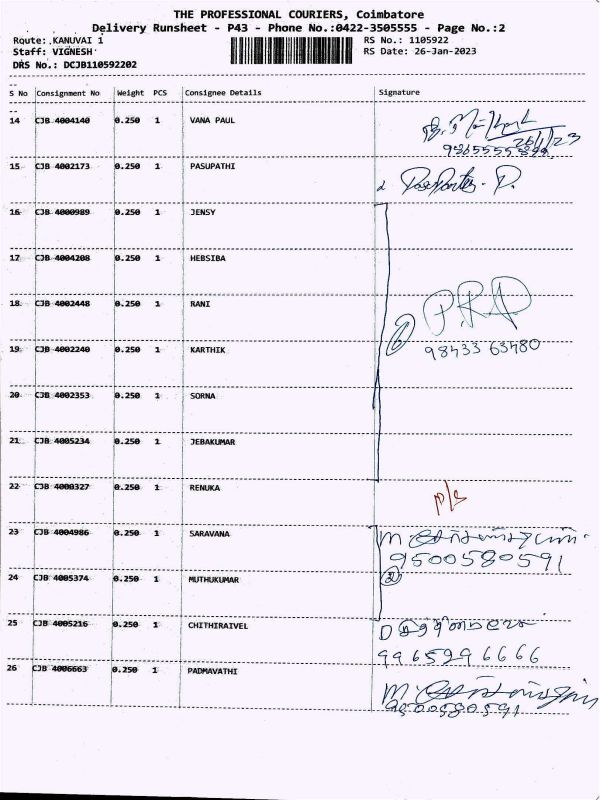 THE PROFESSIONAL COURIERS, Coimbatore
Delivery Runsheet - P43 - Phone No.:0422-3505555 - Page No.:2
Route: KANUVAI 1 RS No.: 1105922
Staff: VIGNESH RS Date: 26-Jan-2023
DRS No.: DCJB110592202
S No Consignment No Weight PCS Consignee Details Signature
14 CJB 4004140 0.250 1 VANA PAUL
26/1/23
15 CJB 4002173 0.250 1 PASUPATHI
16 CJB 4000989 0.250 1 JENSY
17 CJB 4004208 0.250 1 HEBSIBA
18 CJB 4002448 0.250 1 RANI
19 CJB 4002240 0.250 1 KARTHIK
6 98433 63480
20 CJB 4002353 0.250 1 SORNA
21 CJB 4005234 0.250 1 JEBAKUMAR
22 CJB 4000327 0.250 1 RENUKA
23 CJB 4004986 0.250 1 SARAVANA
9500580591
24 CJB 4005374 0.250 1 MUTHUKUMAR
25 CJB 4005216 0.250 1 CHITHIRAIVEL
9965296666
26 CJB 4006663 0.250 1 PADMAVATHI
9500580591